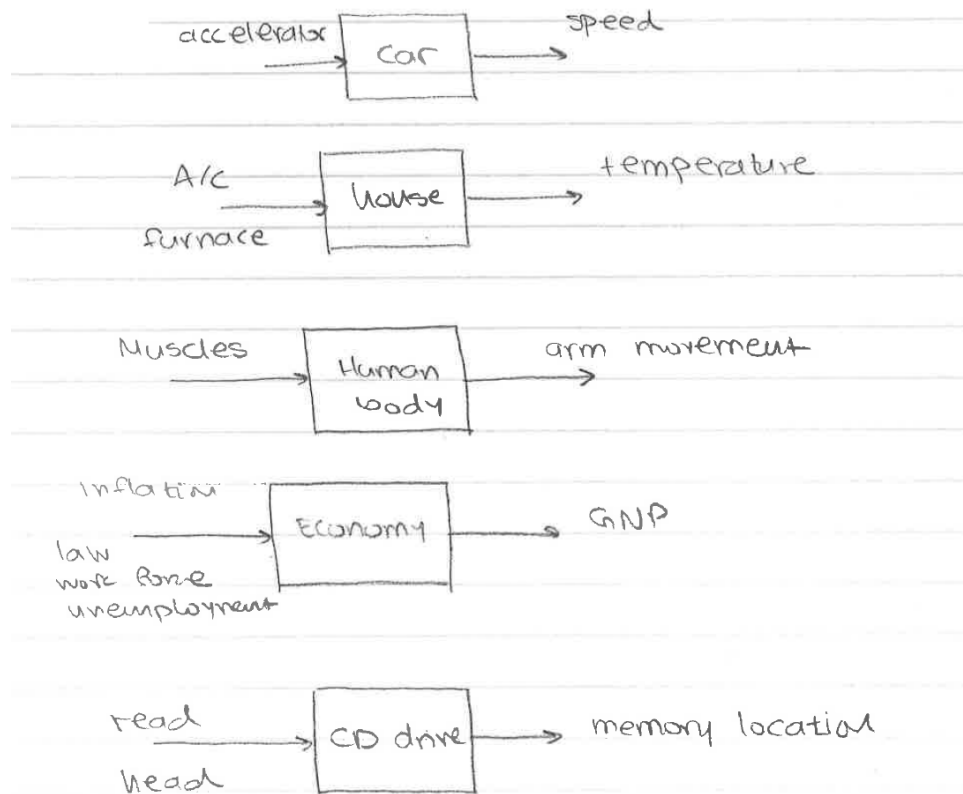 accelerator
car
speed
A/C
furnace
house
temperature
Muscles
Human
body
arm movement
Inflation
law
work force
unemployment
Economy
GNP
read
head
CD drive
memory location